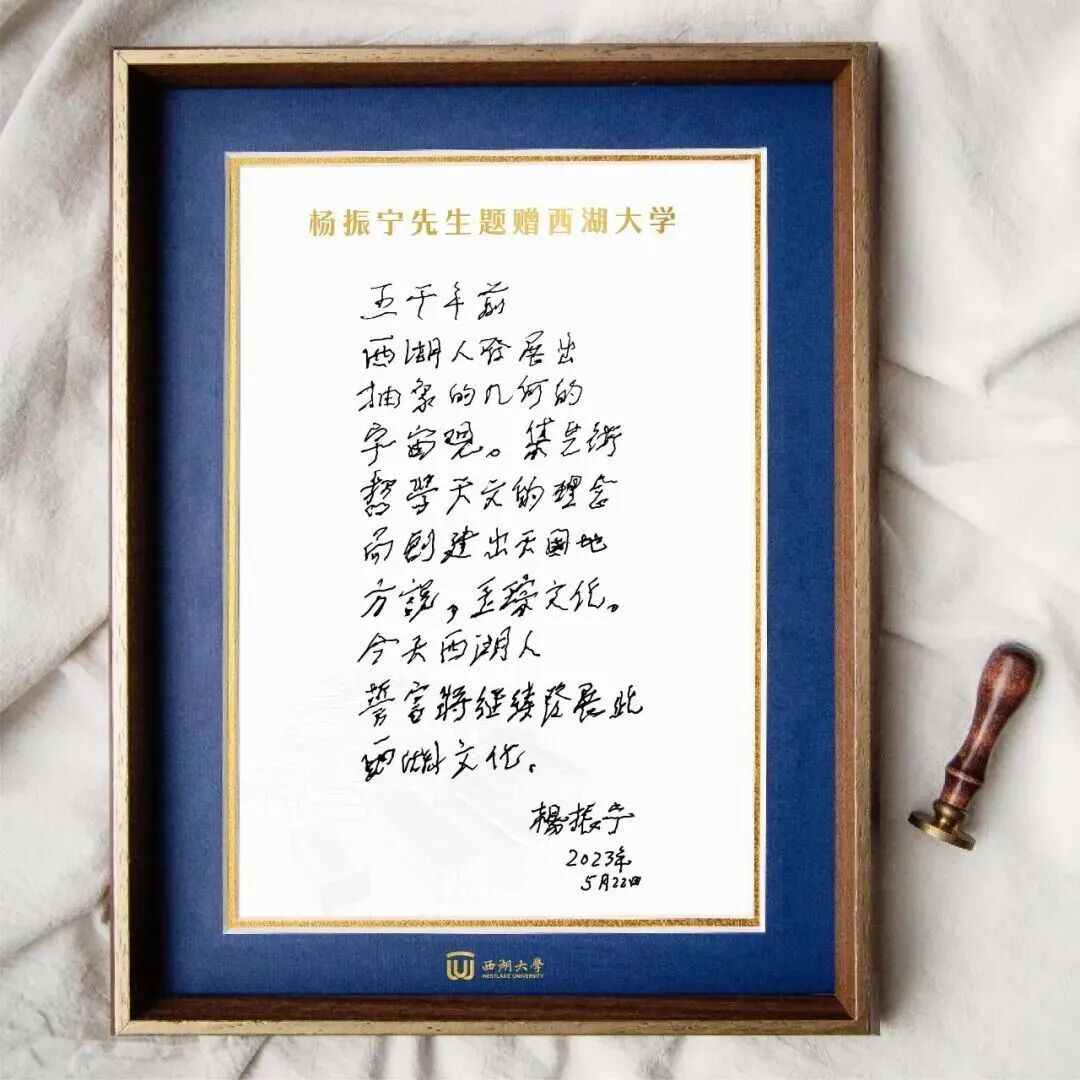 杨振宁先生题赠西湖大学
五千年前
西湖人發展出
抽象的几何的
宇宙观。集艺術
哲學天文的理念
而創建出天圓地
方說,玉琮文化。
今天西湖人
誓將继续發展此
西湖文化.
楊振宁
2023年
5月22日
西湖大學
WESTLAKE UNIVERSITY